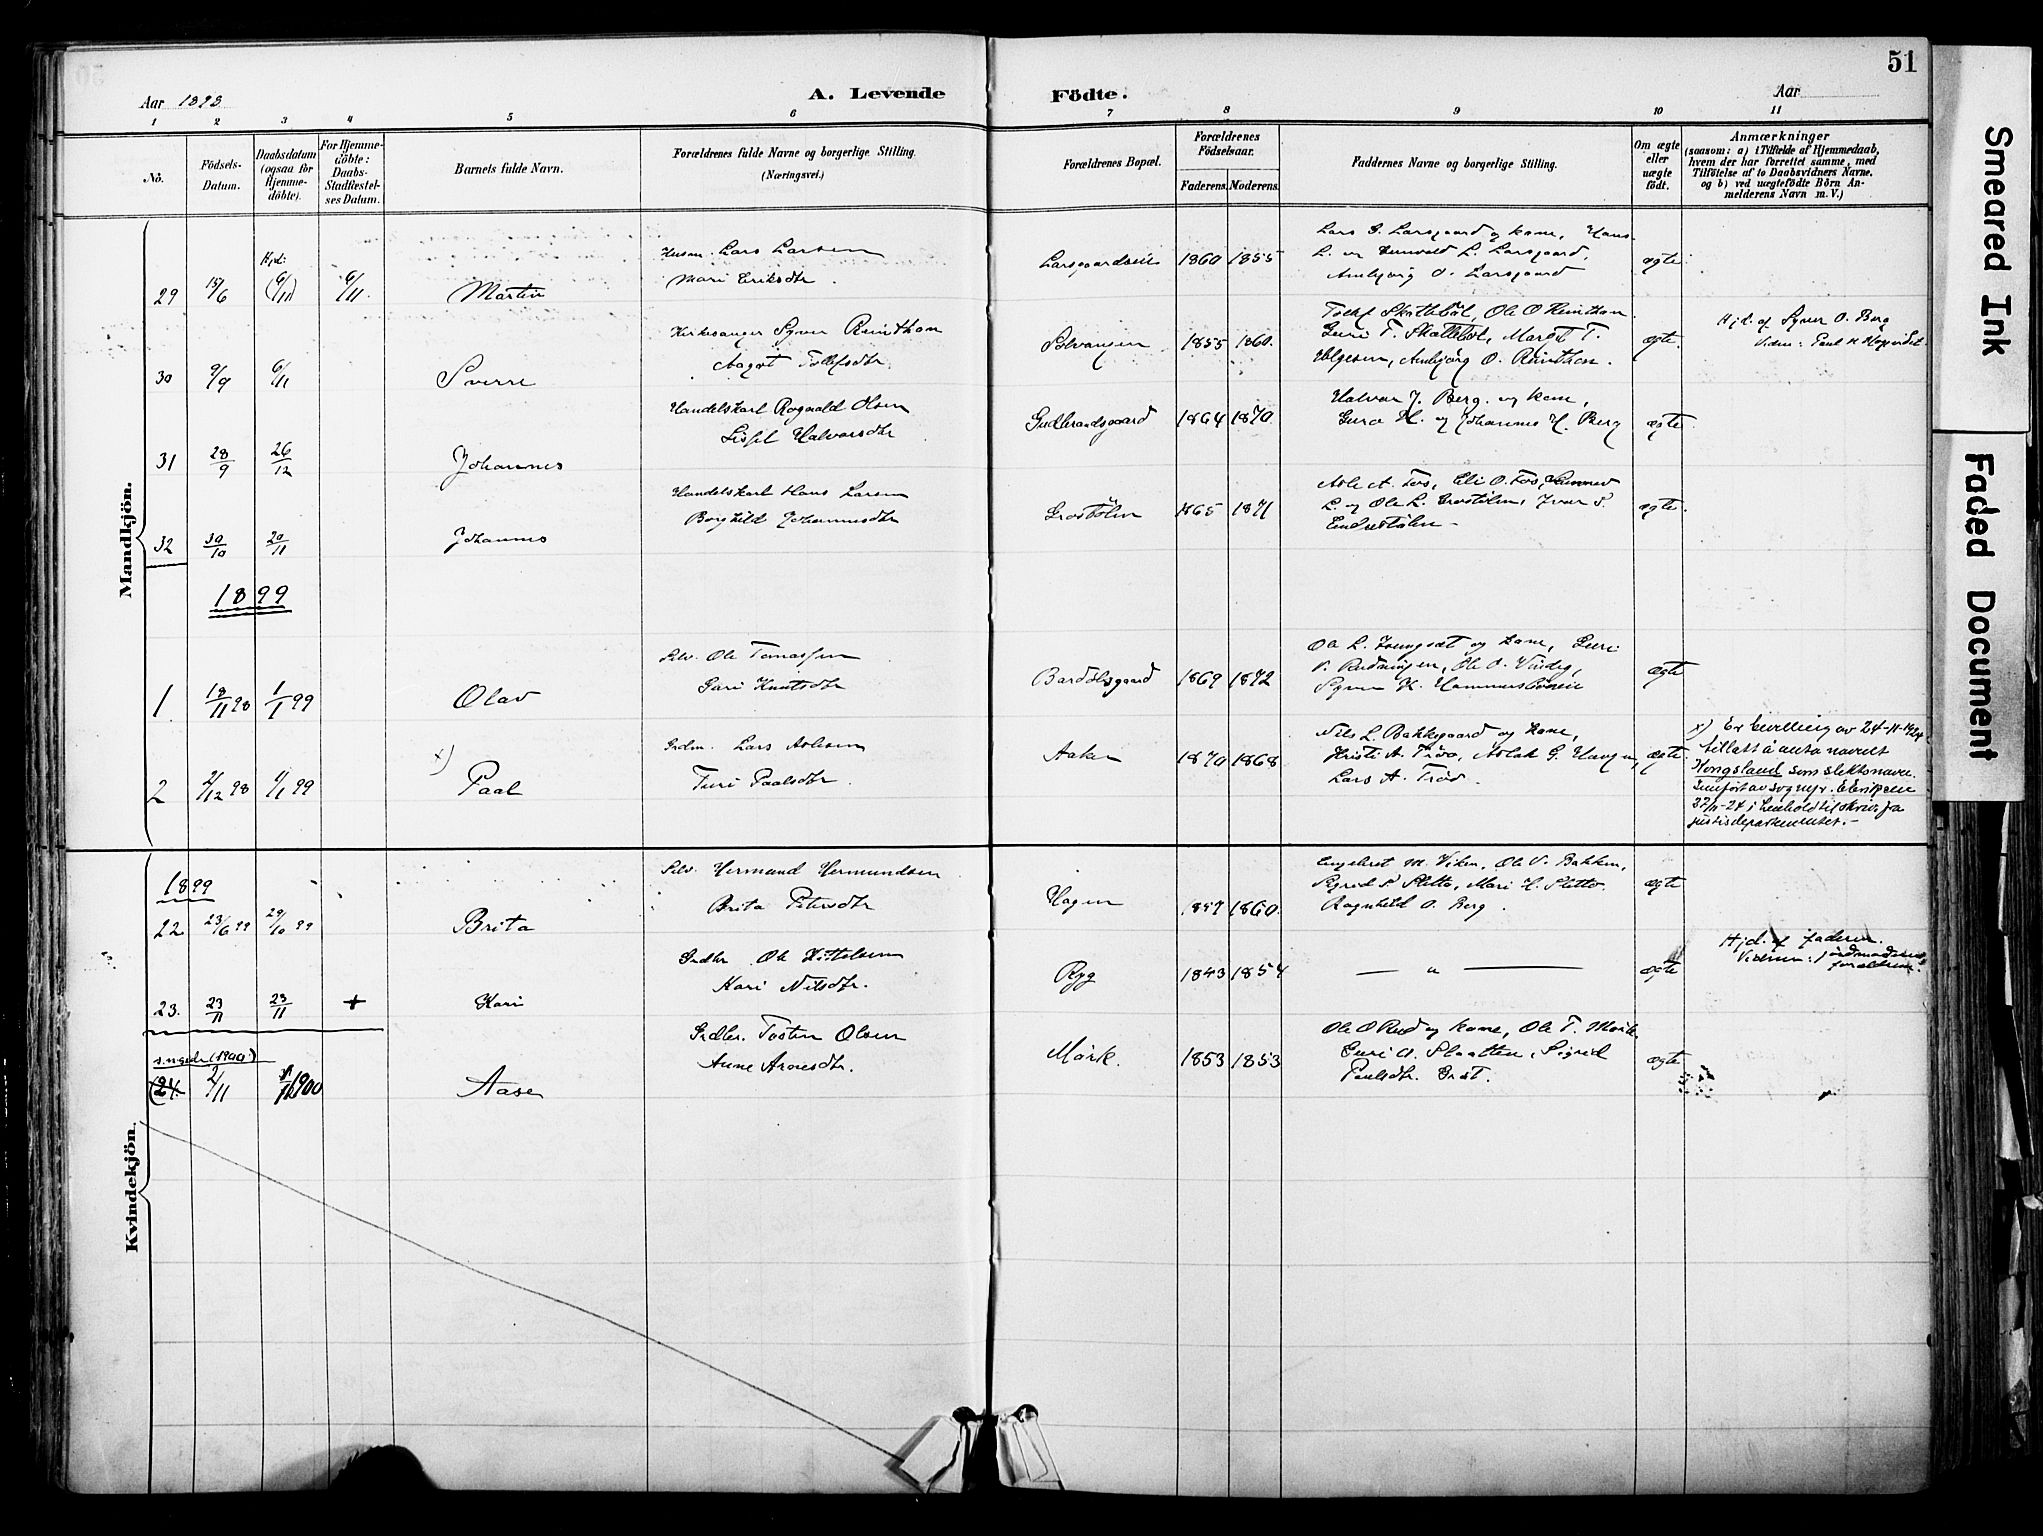 51
Aar 1898
A. Levende Födte.
Aar
1 2 3 4 5 6 7 8 9 10 11
No.
Födsels-Datum.
Daabsdatum (ogsaa for Hjemme-döbte).
For Hjemme-döbte: Daabs-Stadfæstel-ses Datum.
Barnets fulde Navn.
Forældrenes fulde Navne og borgerlige Stilling. (Næringsvei.)
Forældrenes Bopæl.
Forældrenes Födselsaar.
Faderens. Moderens.
Faddernes Navne og borgerlige Stilling.
Om ægte eller uægte født.
Anmærkninger
(saasom: a) i Tilfælde af Hjemmedaab,
hvem der har forrettet samme, med
Tilføielse af to Daabsvidners Navne,
og b) ved uægtefödte Börn An-
melderens Navn m. V.)
Mandkjön.
29 15/6 Hjd. (6/11) 6/11. Martin
Husm. Lars Larsen
Mari Eriksdtr.
Larsgaardseie 1860 1855
Lars G. Larsgaard og kone, Hans
L. og L. Larsgaard,
Ambjørg O. Larsgaard
ægte.
30 9/9 6/11 Sverre
Kirkesanger Syver Reinthon
Aagot Tollefsdtr.
1855 1860.
Skattebøl, Ole O Reinthon
Guri T. Skattebøl, Margit T.
Ambjörg O. Reinthon.
ægte.
Hjd. af Syver O. Berg
31 28/9 26/12 Johannes
Handelskarl Rognald Olsen
Sissel Halvorsdtr
Gudbrandsgaard 1864 1870
Halvor J. Berg. og kone,
Guro H. og Johannes H. Berg
ægte
32 30/10 20/11 Johannes
Handelskarl Hans Larsen
Borghild Johannesdtr
Grøstølen 1865 1871
Asle A. Fos, Eli O. Fos,
L. og Ole L. Grøstølen, Iver S.
Endrestølen -
ægte.
1899
1. 18/11 98 1/1 99 Olav
Selv. Ole Tomassen
Guri Knutsdtr
Bardølsgaard 1869 1872
Ole L. og kone, Guri
Ole O. Vindeg,
Syver K. Hammersbøen
ægte
2 2/12 98 1/1 99 x) Paal
Lars Aslesen
Turi Paalsdtr.
Aaker 1870 1868
Nils L. Bakkegaard og kone,
Kristi A. Trøo, Aslak G. Haugen,
Lars A. Trøo.
ægte.
x) Er bevilling av 24-11-1924
tillatt å anta navnet
Kongsland som slektsnavn.
27/11-24 i henhold til skriv. fra
justisdepartementet. -
Kvindekjön.
1899
22 23/6 99 29/10 99 Brita
Selv. Hermand Hermundsen
Brita Petersdtr
Hagen 1857 1860.
Engebret M. Viken, Ole V. Bakken,
Sigrid S Slette, Mari H. Slette
Ragnhild O. Berg.
ægte
23. 23/11 23/11 + Kari
Grdbr. Ole Kittelsen
Kari Nilsdtr.
Ryg 1843 1854
— " —
ægte
Hjd. af faderen.
Vidner: jordmoderen,
forældrene.
s. næste (1900)
(24. 2/11 1/1 1900 Aase
Grdbr. Tosten Olsen
Anne Arnesdtr.
Mörk. 1853 1853
Ole O Rud og kone, Ole T. Mørk
Guri O. Slaatten, Sigrid
Paulsdtr. Grøt.
ægte
Smeared Ink
Faded Document